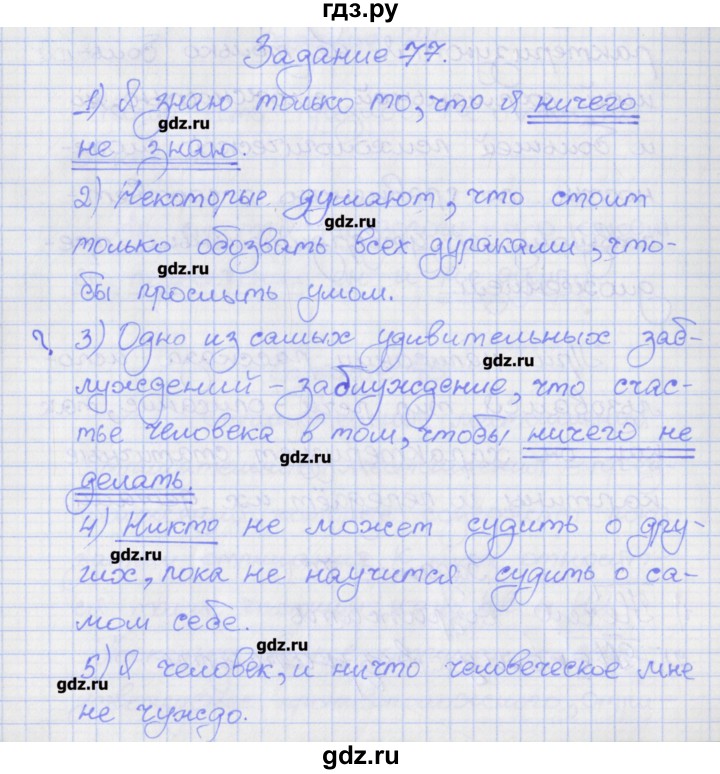 гдз.ру
Задание 77.
1) Я знаю только то, что я ничего
gdz.ru
не знаю.
2) Некоторые думают, что стоит
gdz.ru
только обозвать всех дураками, что-
gdz.ru
бы прослыть умом.
? 3) Одно из самых удивительных заб-
gdz.ru
луждений – заблуждение, что счас-
тье человека в том, чтобы ничего не
gdz.ru
делать.
4) Никто не может судить о дру-
gdz.ru
гих, пока не научится судить о са-
мом себе.
gdz.ru
5) Я человек, и ничто человеческое мне
gdz.ru
не чуждо.
gdz.ru